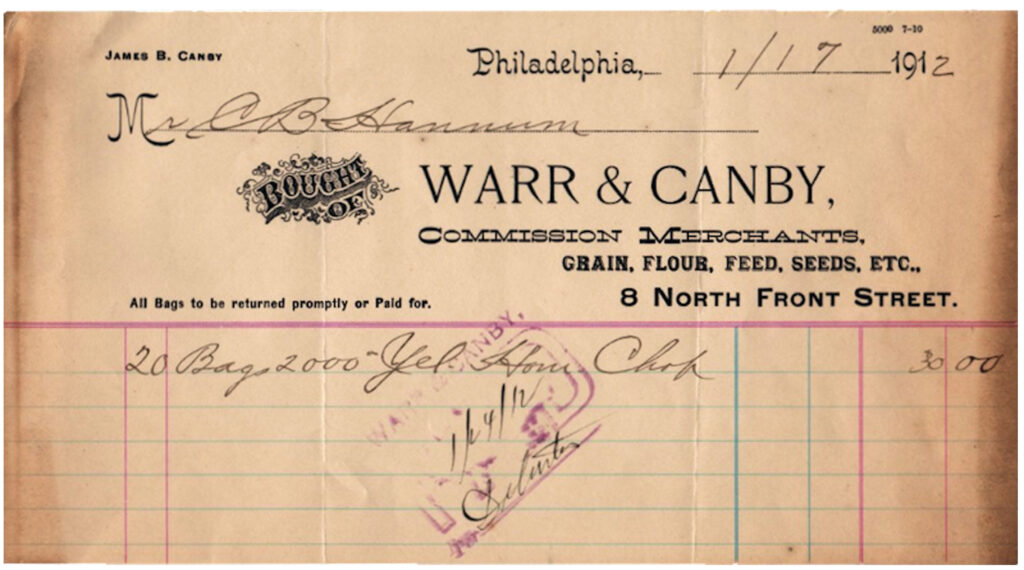 5000 7-10
James B. Canby
Philadelphia, 1/17 1912
Mr C B Hannum
BOUGHT OF
WARR & CANBY,
COMMISSION MERCHANTS,
GRAIN, FLOUR, FEED, SEEDS, ETC.,
All Bags to be returned promptly or Paid for.
8 NORTH FRONT STREET.
20 Bags 2000 Yel Hom Chop 30 00
WARR & CANBY,
1/24/12